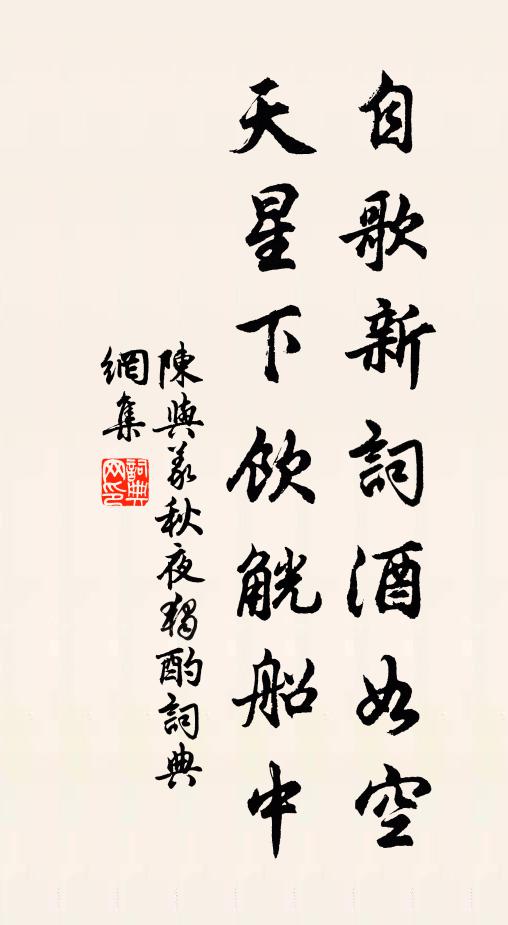 自歌新詞酒如空
天星下飲觥船中
陳與義秋夜獨酌詞典
網集
詞典
网印